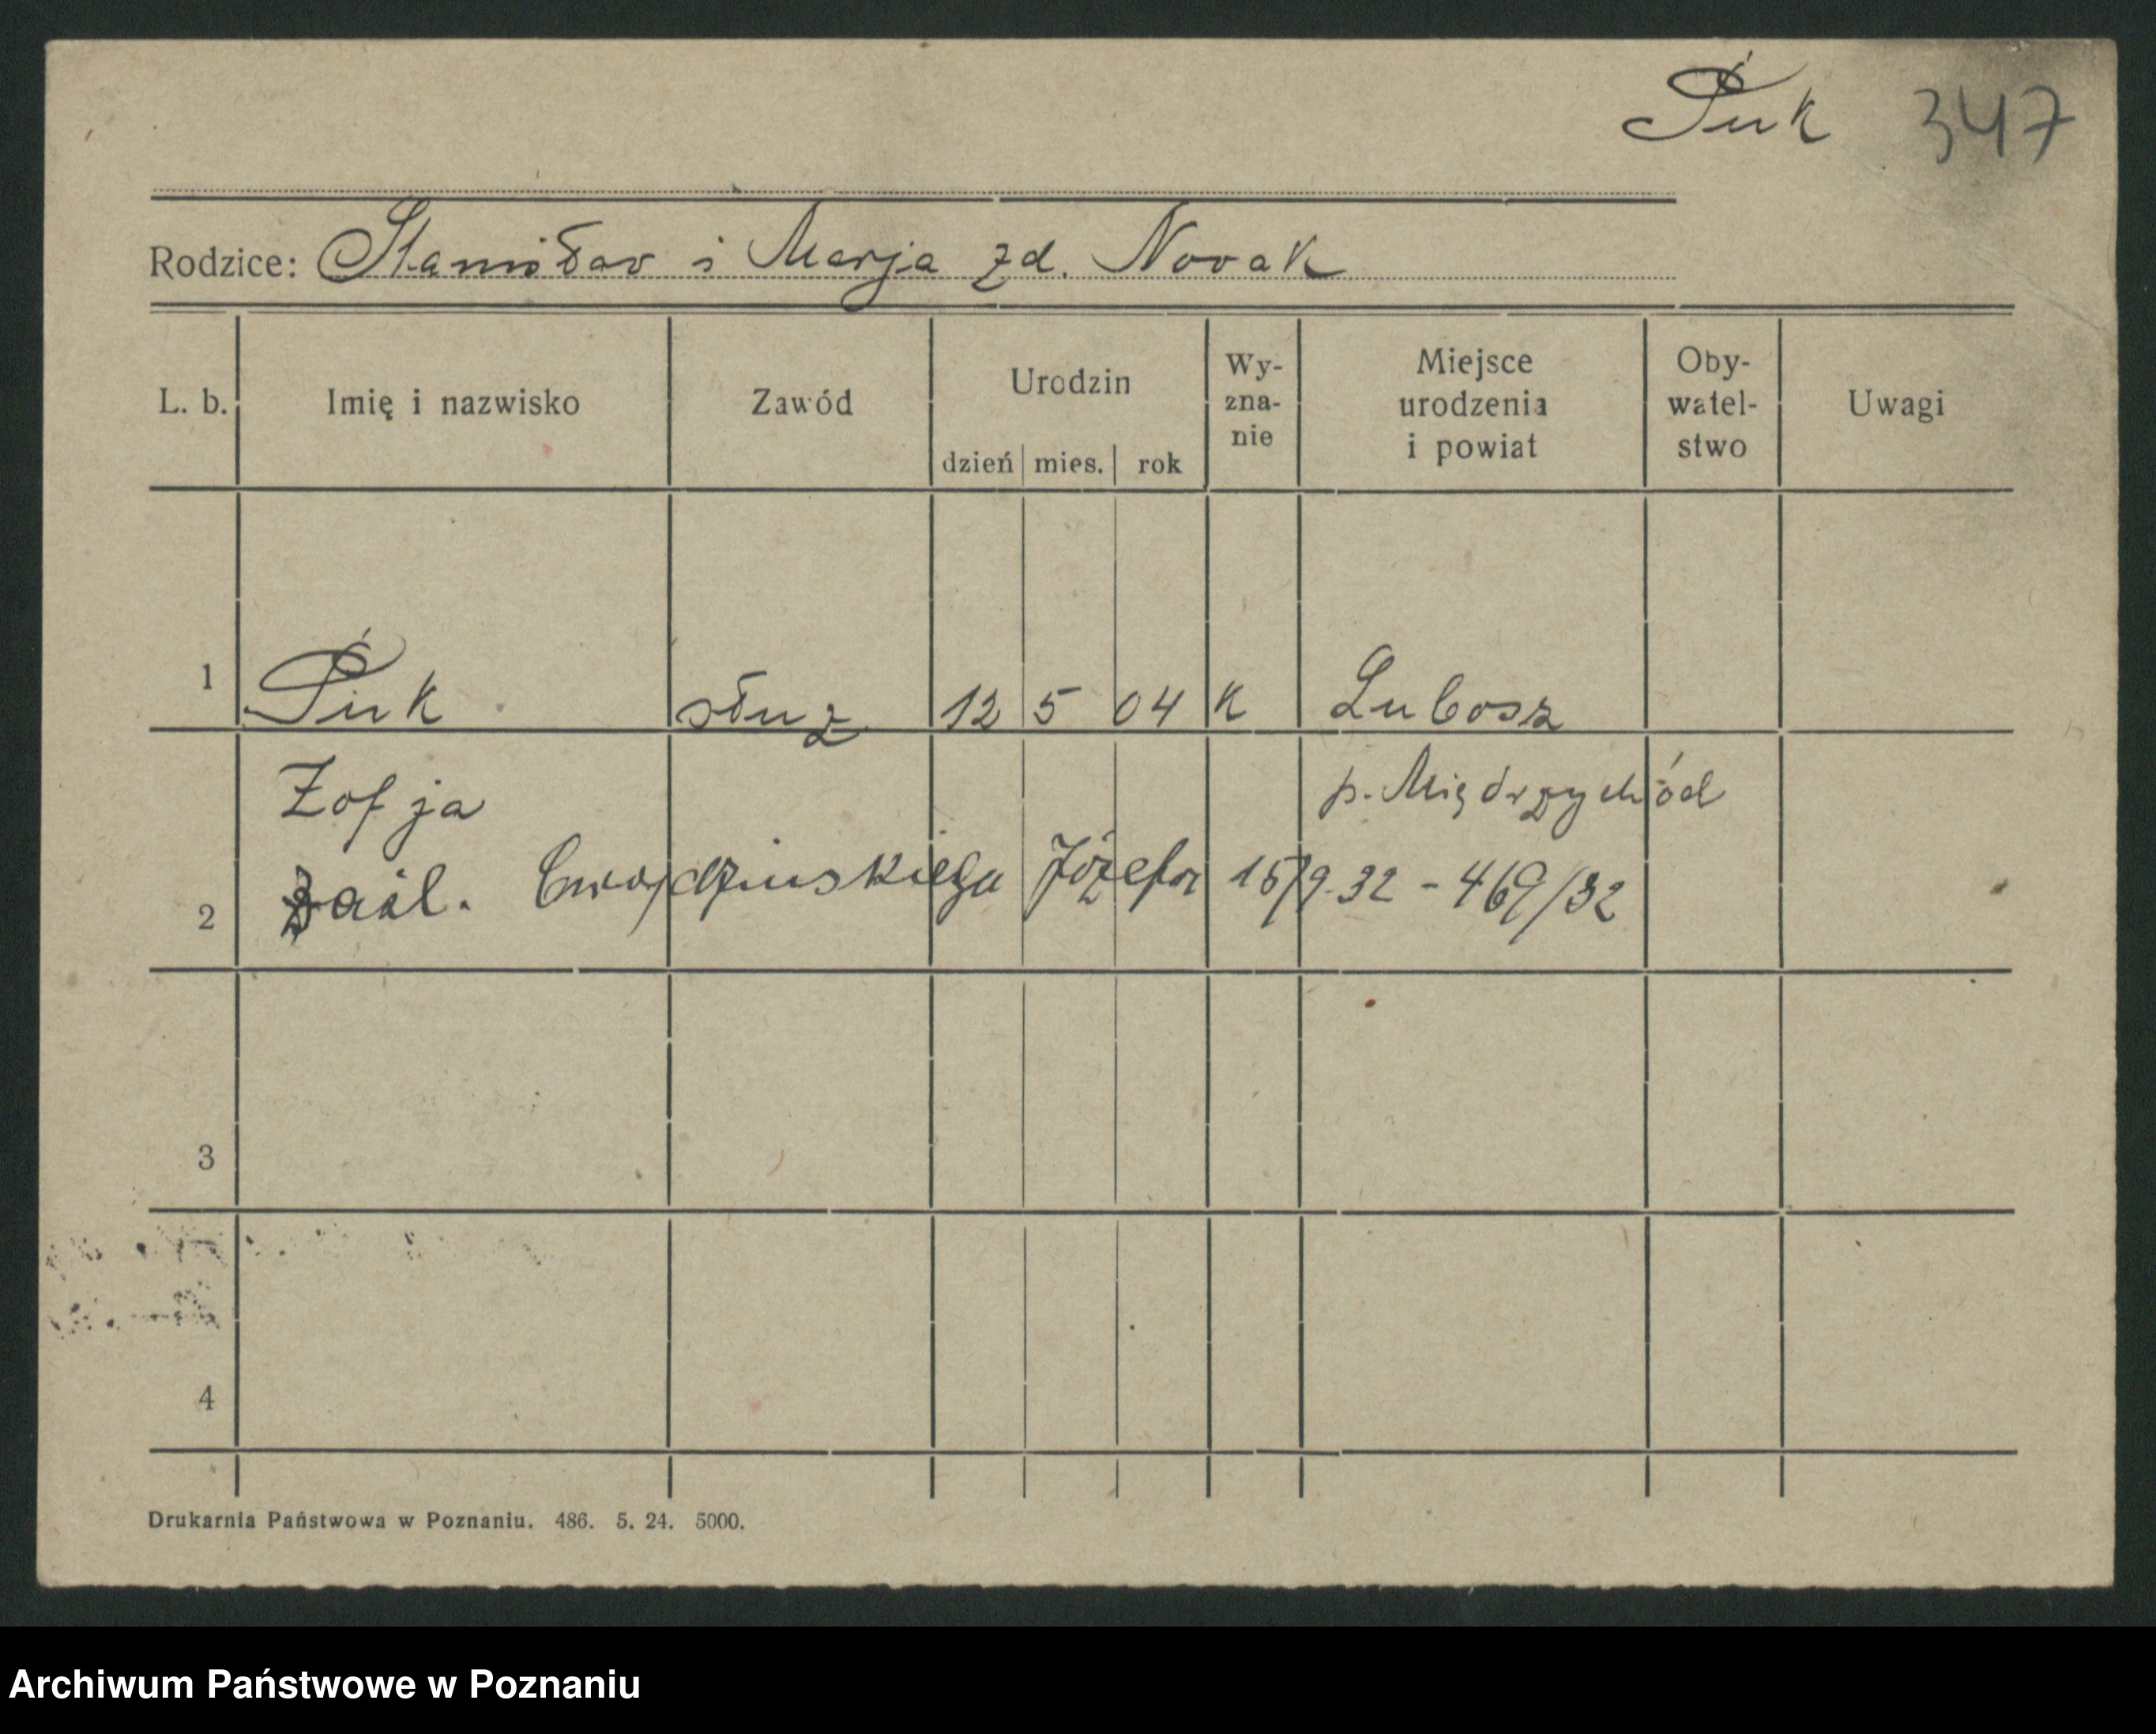 Piuk 347
Rodzice: Stanisław i Marja zd. Nowak
L. b. Imię i nazwisko Zawód Urodzin dzień mies. rok Wy-zna-nie Miejsce urodzenia i powiat Oby-watel-stwo Uwagi
1 służ 12 5 04 K Lubosz
Zofja p. Międzychód
2 zaśl. Józefa 15/9-32 - 469/32
3
4
Drukarnia Państwowa w Poznaniu. 486. 5. 24. 5000.
Archiwum Państwowe w Poznaniu